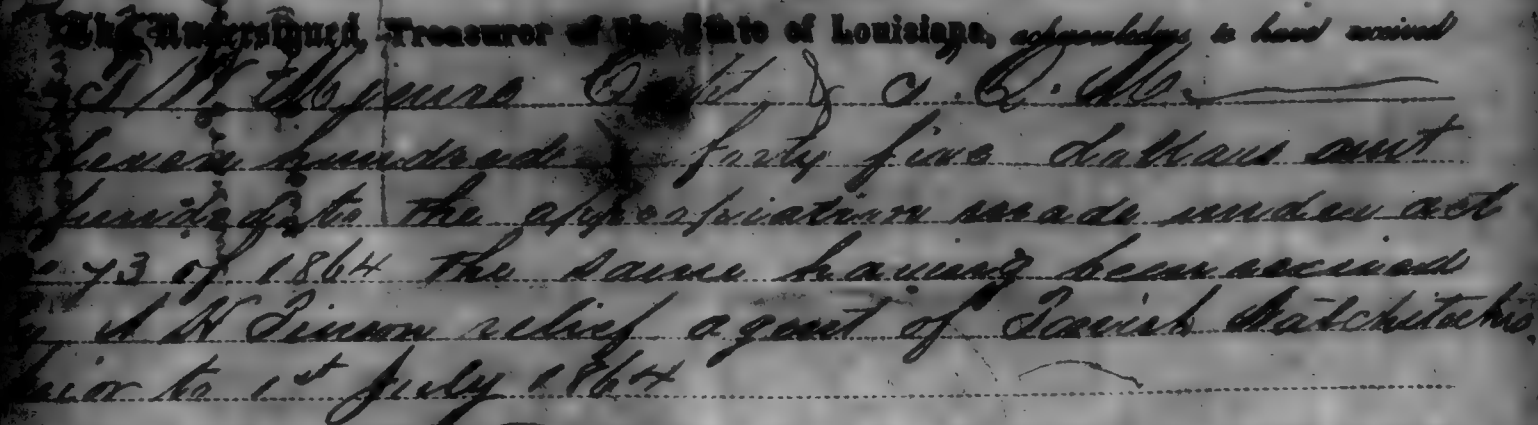 The Undersigned, Treasurer of the State of Louisiana, acknowledges to have received
W Mynne Capt & A. Q. M.
hundred forty five dollars amt
refunded to the appropriation made under act
73 of 1864 the same having been received
by A W Pinson relief agent of Parish Natchitoches
prior to 1st July 1864